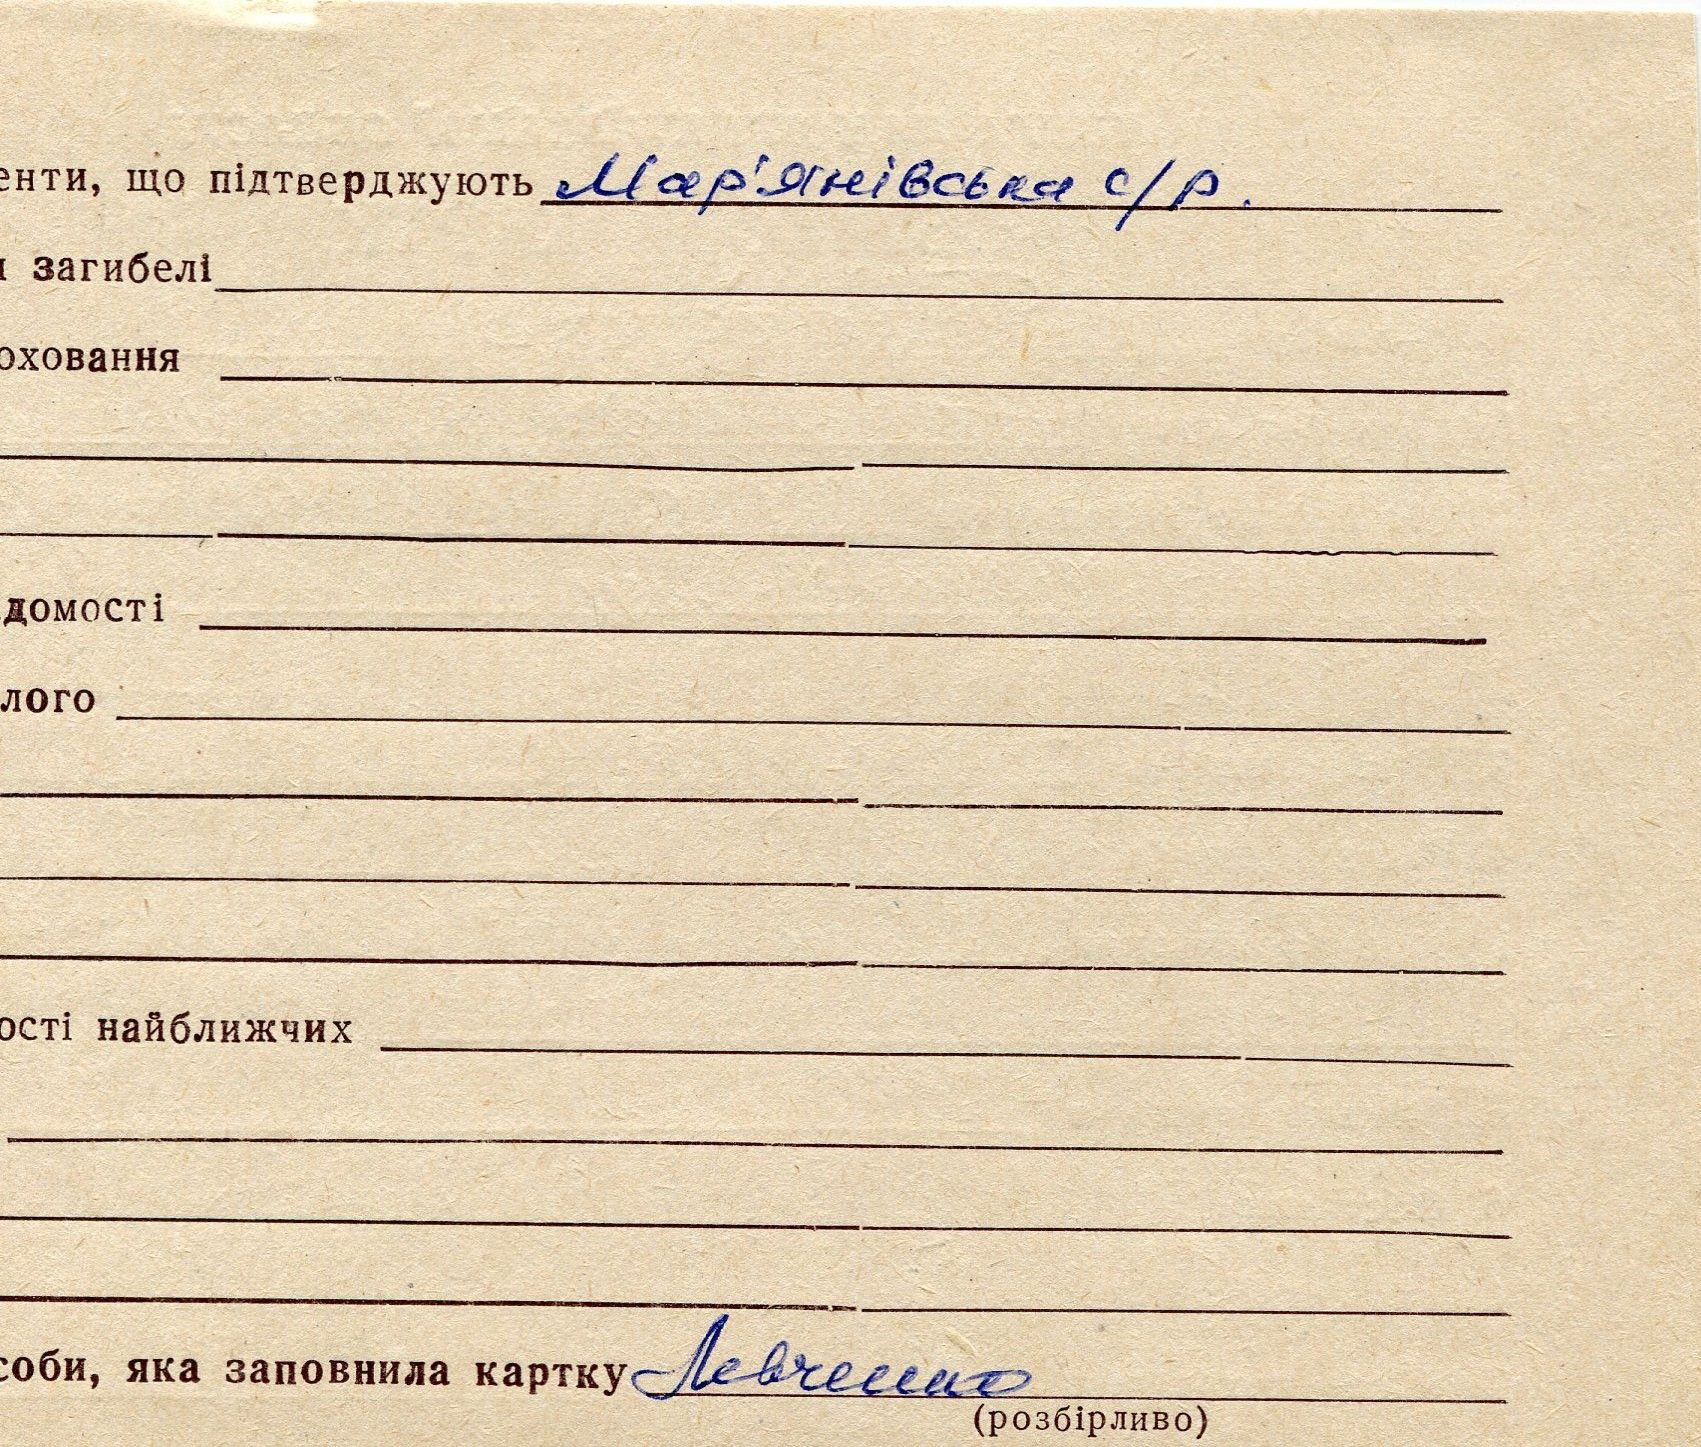 енти, що підтверджують Мар'янівська с/р.
и загибелі
оховання
домості
лого
ості найближчих
соби, яка заповнила картку Левченко
(розбірливо)